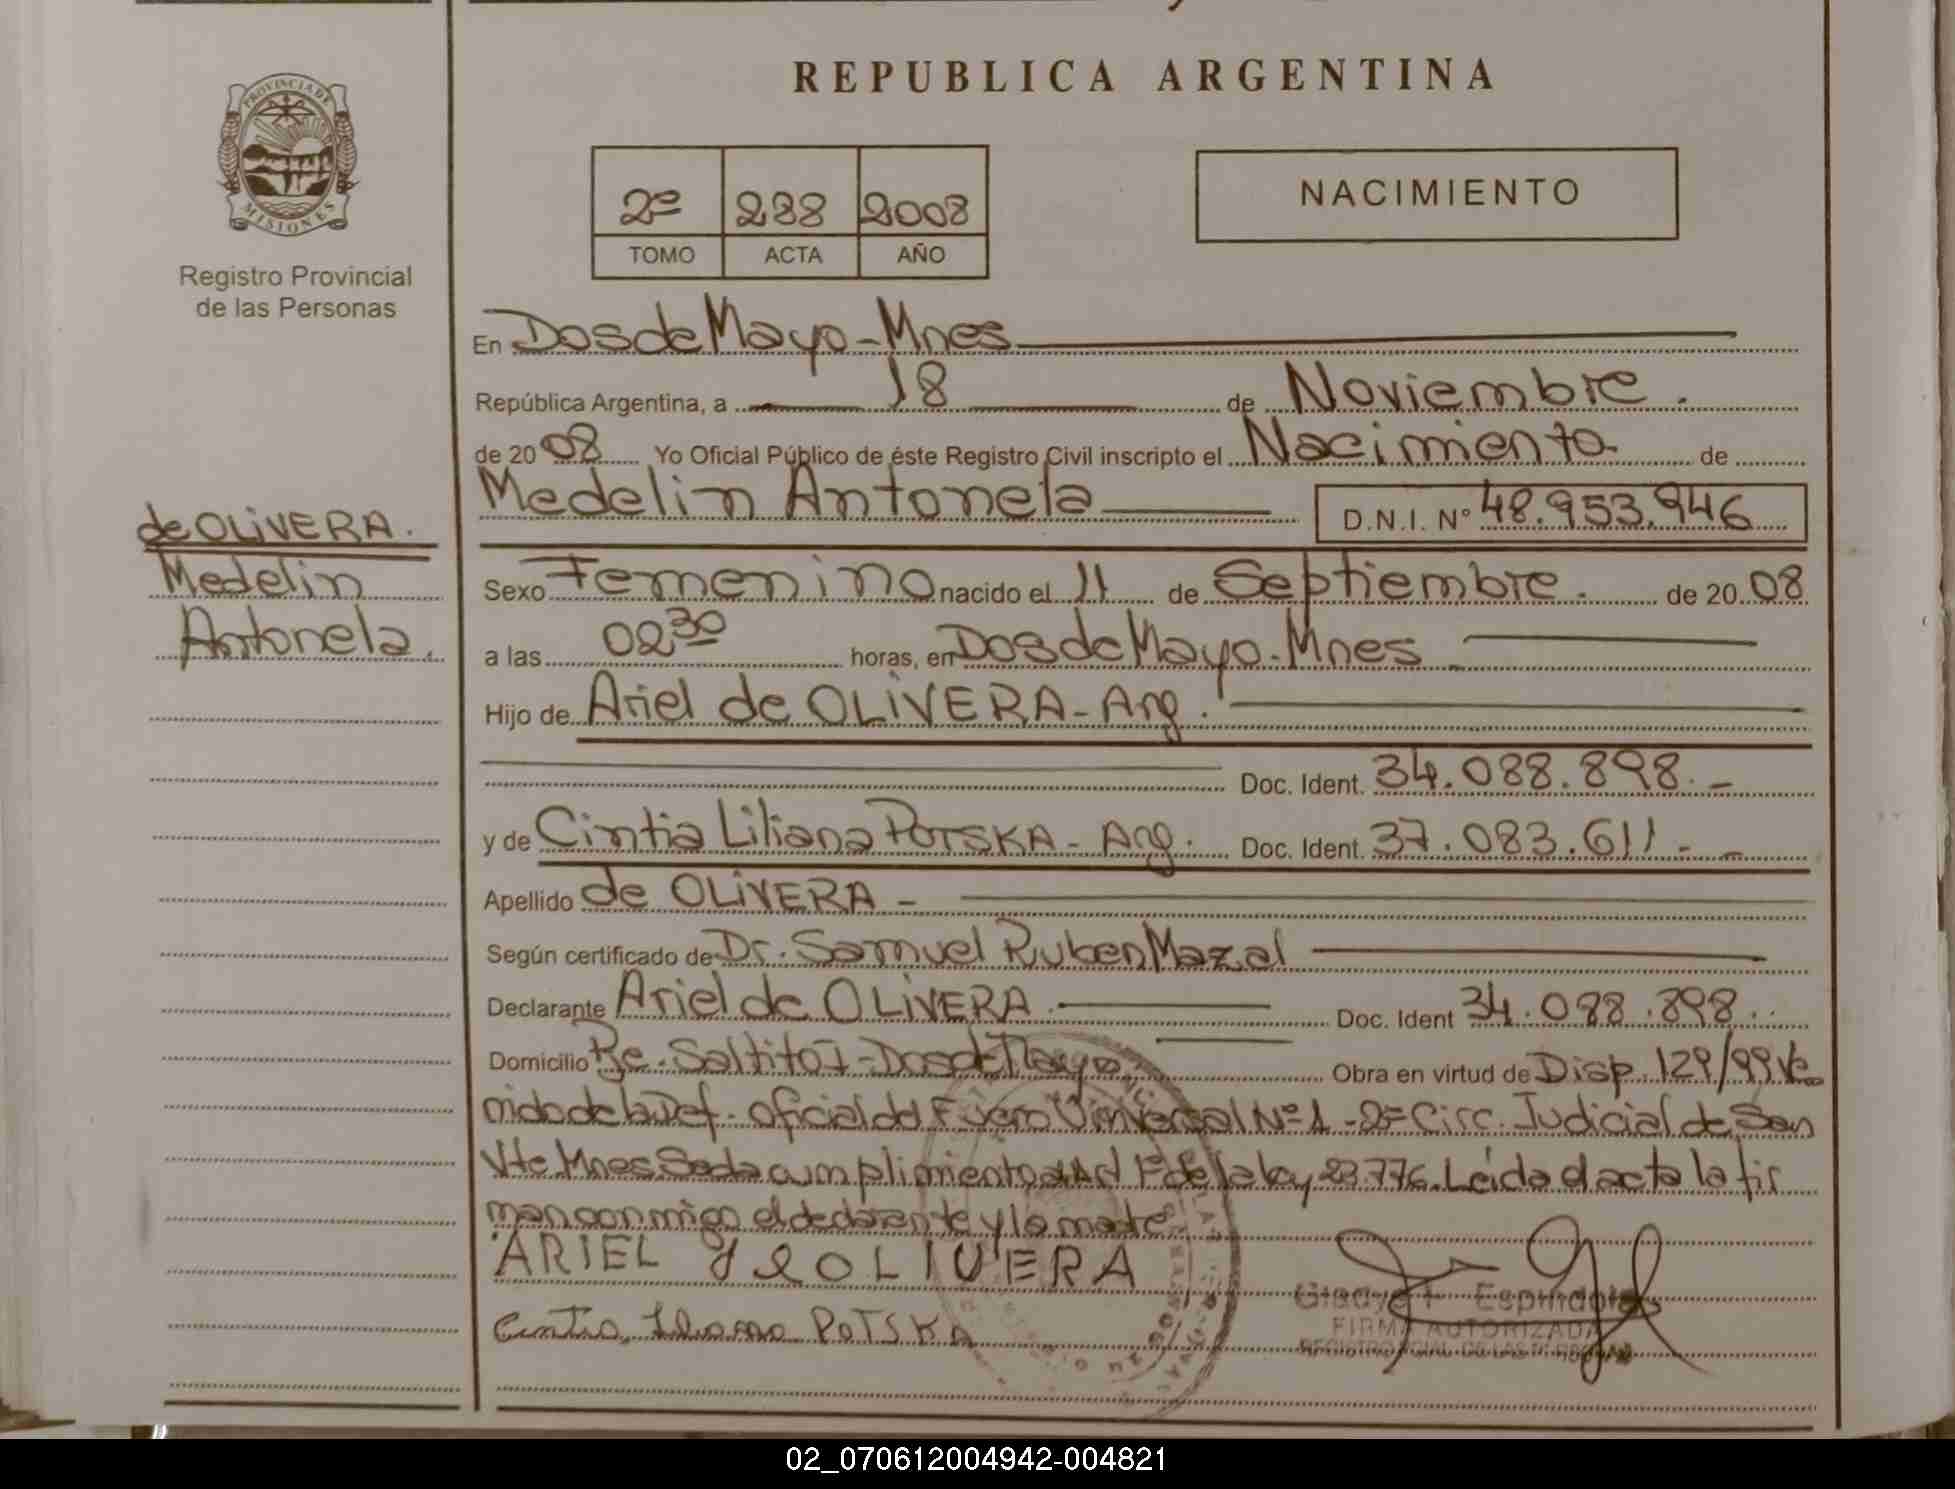 REPUBLICA ARGENTINA
PROVINCIA DE
MISIONES
Registro Provincial
de las Personas
2º 288 2008
TOMO ACTA AÑO
NACIMIENTO
En Dos de Mayo - Mnes
República Argentina, a 18 de Noviembre.
de 20 08 Yo Oficial Público de éste Registro Civil inscripto el Nacimiento de
Medelin Antonela D.N.I. Nº 48.953.946
de OLiVERA.
Medelin
Antonela.
Sexo Femenino nacido el 11 de Septiembre. de 20 08
a las 02 30 horas, en Dos de Mayo - Mnes
Hijo de Ariel de OLiVERA - Arg.
Doc. Ident. 34.088.898. -
y de Cintia Liliana POTSKA - Arg. Doc. Ident. 37.083.611 - -
Apellido de OLiVERA -
Según certificado de Dr. Samuel Ruben Mazal
Declarante Ariel de OLiVERA. Doc. Ident 34.088.898..
Domicilio Pje. Saltito I - Dos de Mayo Obra en virtud de Disp. 129/99 Ve
nido de la Def. oficial del Fuero Universal Nº 1 - 2º Circ. Judicial de San
Vte Mnes. Se da cumplimiento al Art 1º de la ley 23.776. Leida el acta la fir
man conmigo el declarante y la madre
ARIEL de OLIVERA
Cintia Liliana POTSKA
Gladys Espindola
FIRMA AUTORIZADA
REGISTRO PCIAL. DE LAS PERSONAS
02_070612004942-004821